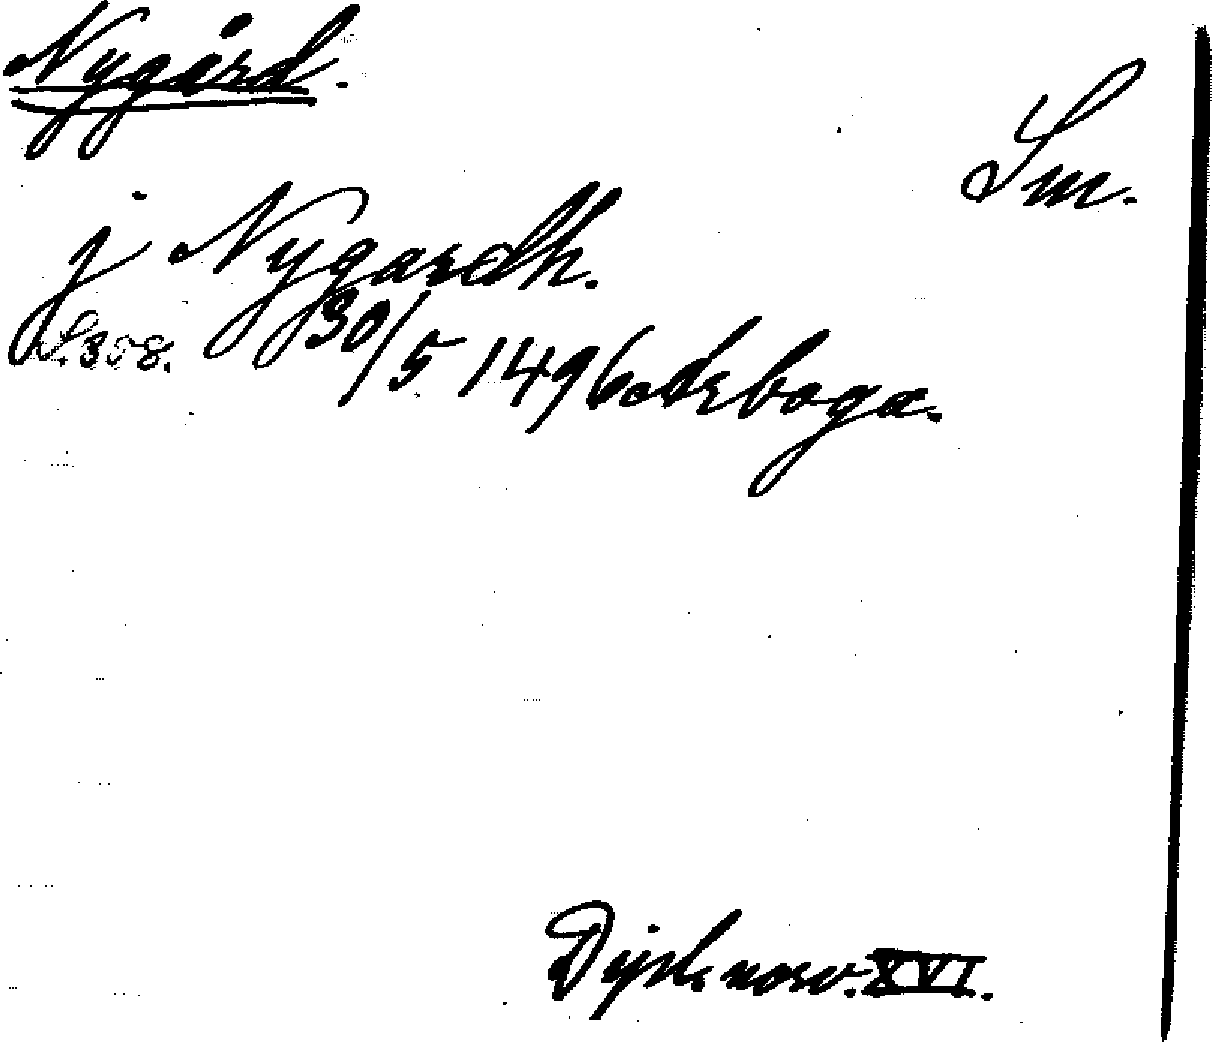 Nygård.
Sm.
j Nygardh.
S. 358. 30/5 1496 Arboga.
Dipl. norv. XVI.